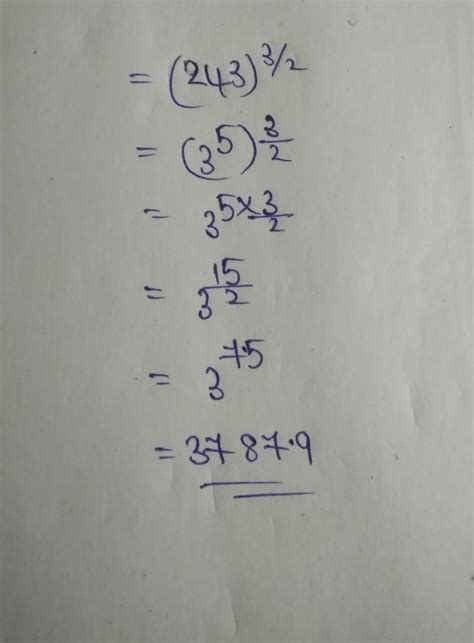 = (243)^3/2
= (3^5)^3/2
= 3^5×3/2
= 3^15/2
= 3^7.5
= 3787.9